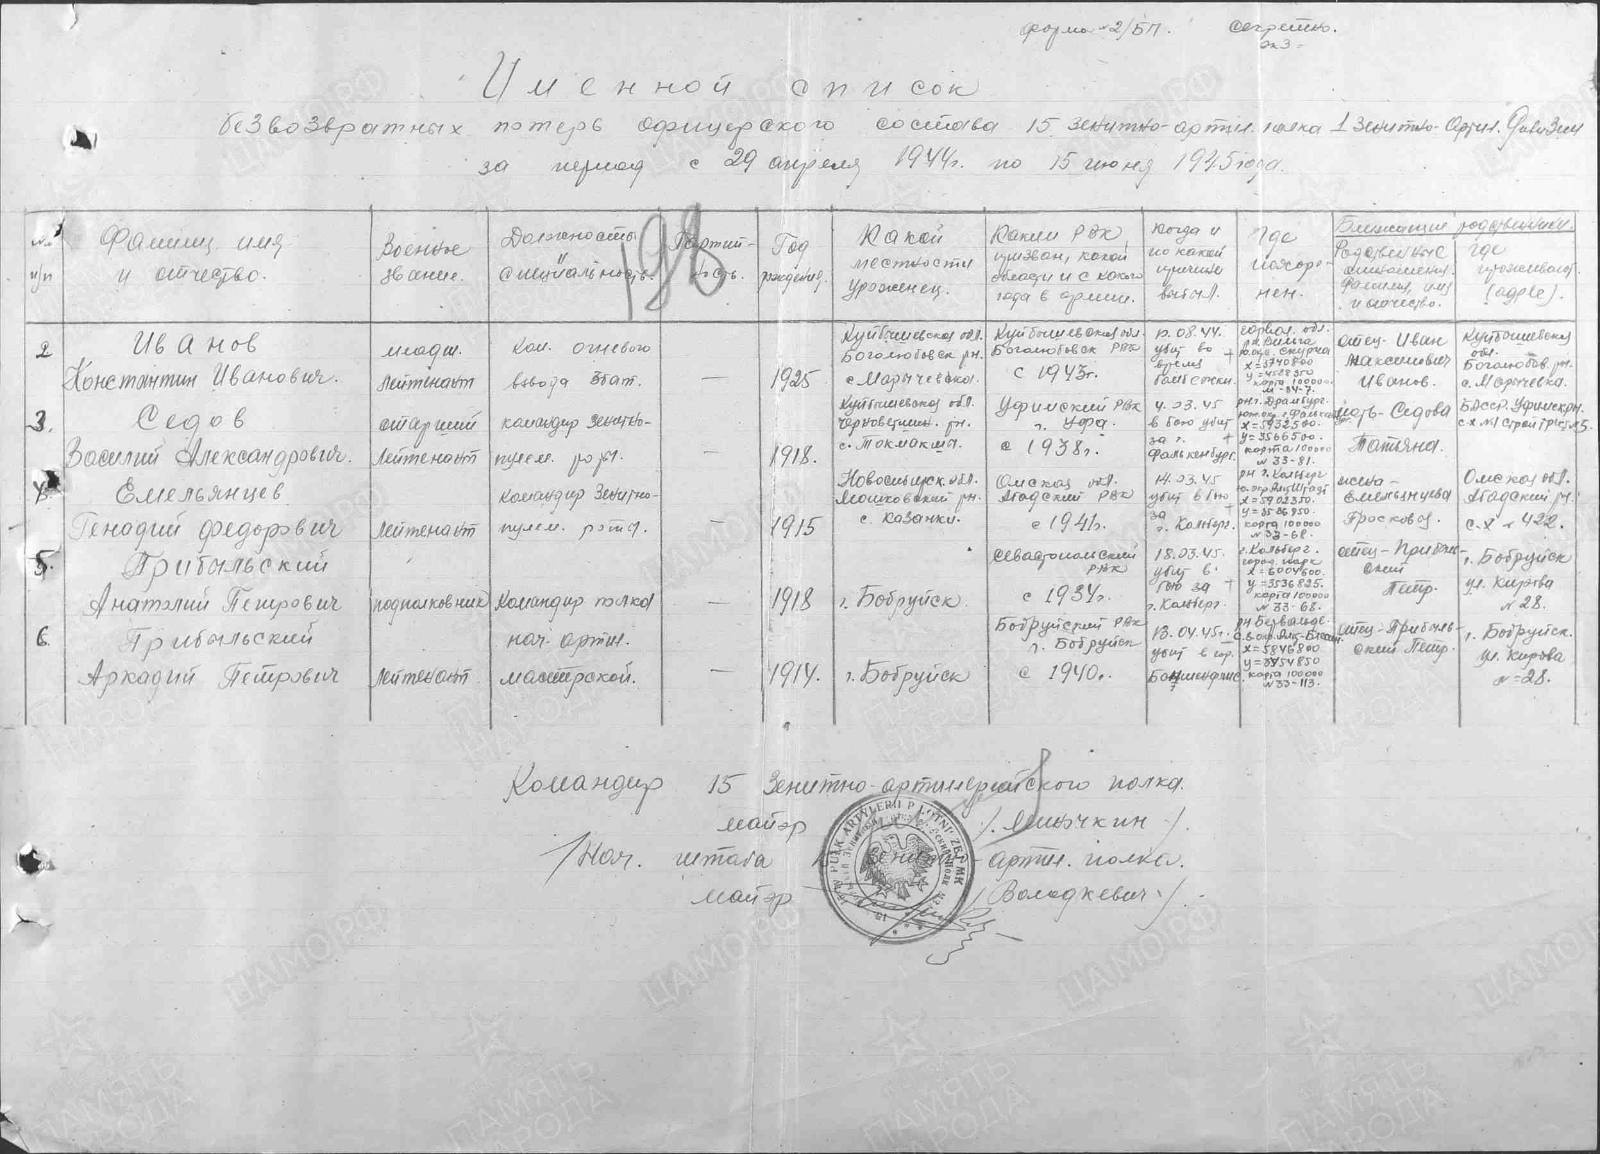 форма №2/БП. Секретно.
эк3
Именной список
безвозвратных потерь офицерского состава 15 зенитно-артил. полка 1 Зенитно-Артил. Дивизии
за период с 29 апреля 1944г. по 15 июня 1945 года.
198
№№ п/п
Фамилия, имя и отчество.
Военное звание.
Должность и специальность.
Партийность.
Год рождения
Какой местности уроженец.
Каким РВК призван, какой области и с какого года в армии.
Когда и по какой причине выбыл.
Где похоронен.
Ближайшие родственники.
Родственные отношения фамилия, имя и отчество.
Где проживают (адрес).
2 Иванов
Константин Иванович.
младш. лейтенант
ком. огневого взвода
—
1925
Куйбышевская обл. Боголюбовск рн. с Марычевка.
Куйбышевская обл. Боголюбовск РВК с 1943г.
08.44. убит во время бомбежки.
x=5740800
y=4588350
карта 100000
отец-Иван Максимович Иванов.
Куйбышевская обл. Боголюбов. рн. с. Марычевка.
3. Седов
Василий Александрович.
старший лейтенант
командир зенитно-пулем. роты.
—
1918.
Куйбышевская обл. рн. с. Токмакла.
Уфимский РВК г. Уфа. с 1938г.
4.03.45 в бою убит за г. Фалькенбург.
рн г. Драмбург.
x=5932500
y=3566500
карта 100000
№33-81.
мать-Седова Татьяна.
БАССР. Уфимск рн. с-х №1
4. Емельянцев
Генадий Федорович
лейтенант
Командир Зенитно-пулем. роты.
—
1915
Новосибирск. обл. Мошковский рн. с. Казанки.
Омская обл. РВК с 1941г.
14.03.45 убит в бою за г. Кольберг.
рн г. Кольберг
x=5902350
y=3536950
карта 100000
№33-68.
жена-Емельянцева
Омская обл. рн. с.х. №422.
5. Прибыльский
Анатолий Петрович
подполковник
Командир полка
—
1918
г. Бобруйск.
Севастопольский РВК с 1934г.
18.03.45. убит в бою за г. Кольберг.
г. Кольберг. город. парк
x=6004600.
y=3536825.
карта 100000
№33-68.
отец-Прибыльский Петр.
г. Бобруйск ул. Кирова №28.
6. Прибыльский
Аркадий Петрович
лейтенант.
нач. артил. мастерской.
—
1914.
г. Бобруйск
Бобруйский РВК г. Бобруйск с 1940г.
13.04.45г. убит в гор.
x=5846800
y=3454850
карта 100000
№33-113.
отец-Прибыльский Петр.
г. Бобруйск. ул. Кирова №28.
Командир 15 Зенитно-артилерийского полка.
майор /. Мишчкин /.
/Нач. штаба Зенит-артил. полка.
майор /Володкевич./.
PUŁK ARTYLERII PLOTNICZEJ MK
ЦАМО.РФ
ПАМЯТЬ НАРОДА